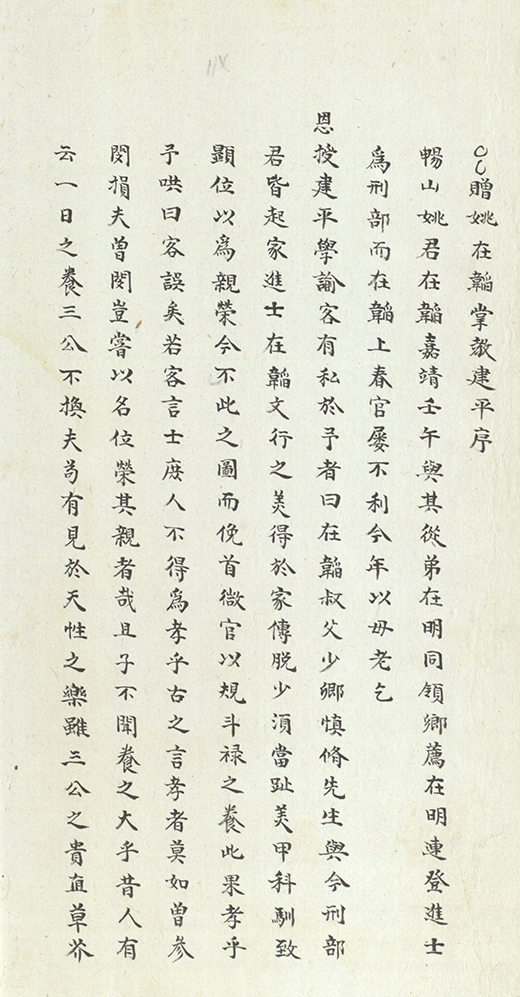 ○○贈姚在韜掌教建平序
暢山姚君在韜嘉靖壬午與其從弟在明同領鄉薦在明連登進士
為刑部而在韜上春官屢不利今年以母老乞
恩授建平學諭客有私於予者曰在韜叔父少卿慎脩先生與今刑部
君皆起家進士在韜文行之美得於家傳脫少須當趾美甲科馴致
顯位以為親榮今不此之圖而俛首微官以規斗禄之養此果孝乎
予哄曰客誤矣若客言士庶人不得為孝乎古之言孝者莫如曾參
閔損夫曾閔豈嘗以名位榮其親者哉且子不聞養之大乎昔人有
云一日之養三公不換夫苟有見於天性之樂雖三公之貴直草芥